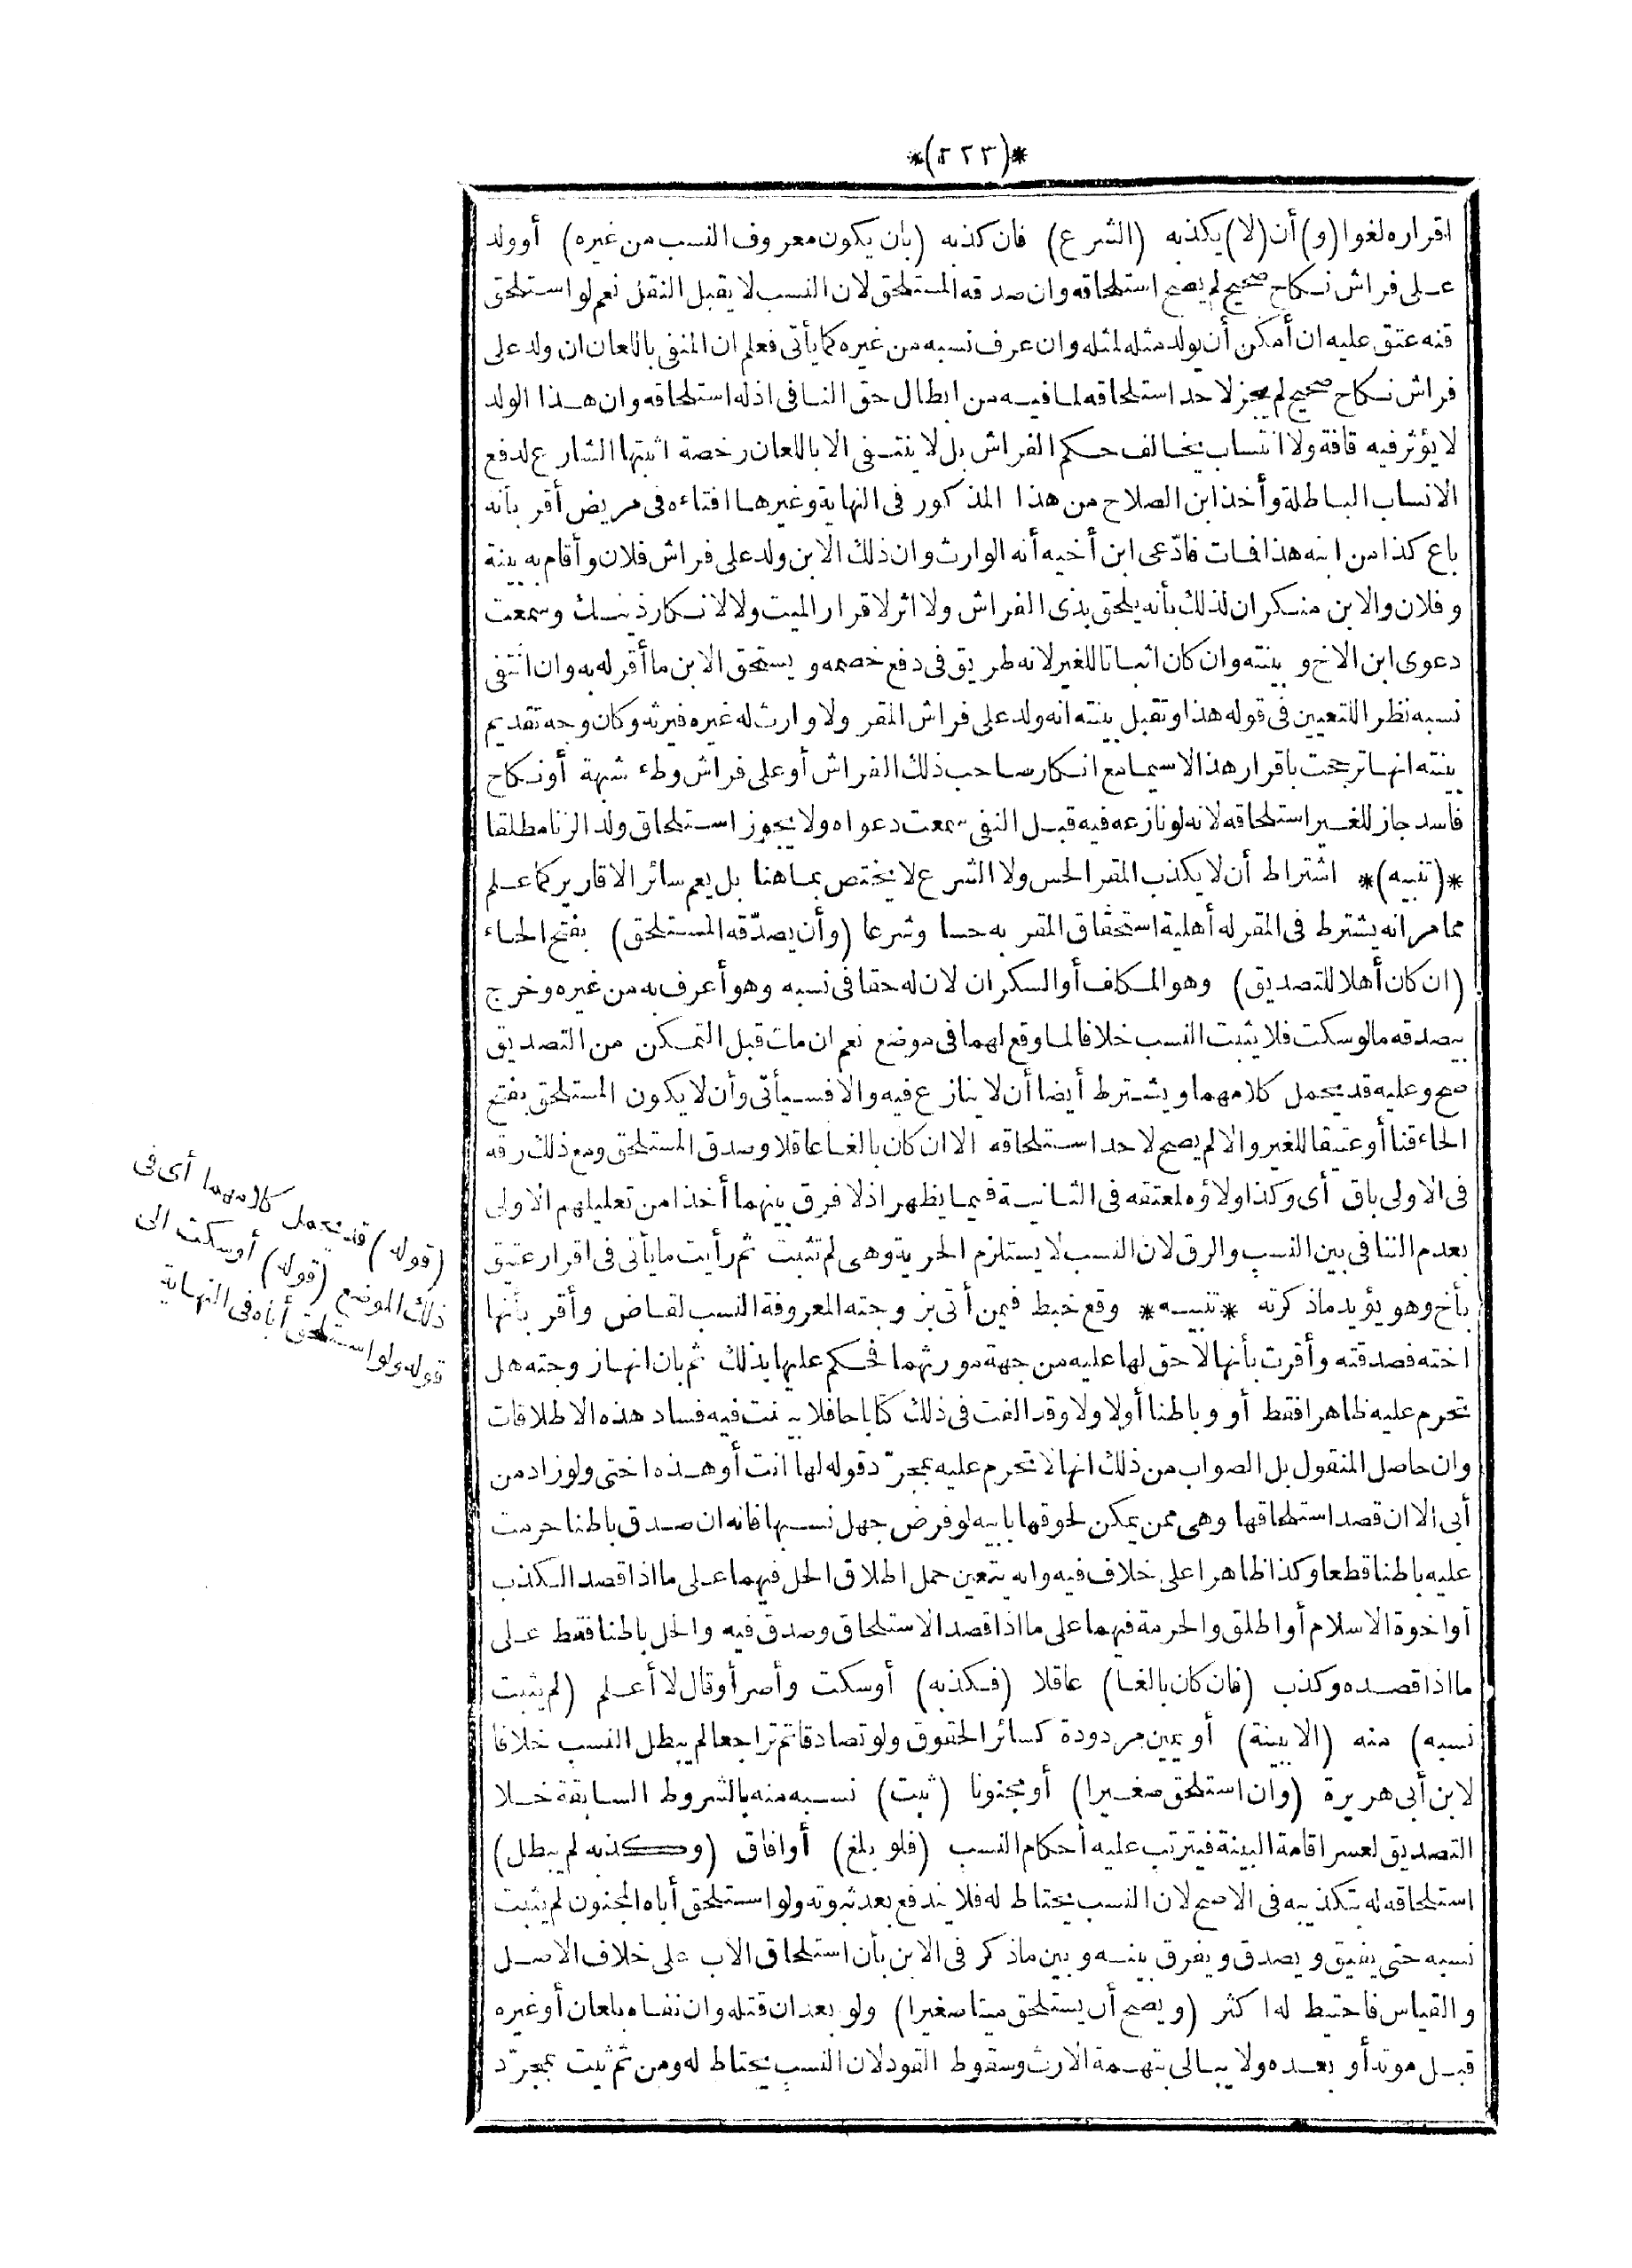 *(٢٢٣)*
اقراره لغوا (و) أن (لا) يكذبه (الشرع) فان كذبه (بأن يكون معروف النسب من غيره) أو ولد
على فراش نكاح صحيح لم يصح استلحاقه وان صدقه المستلحق لان النسب لا يقبل النقل نعم لو استلحق
قنه عتق عليه ان أمكن أن يولد مثله لمثله وان عرف نسبه من غيره كما يأتى فعلم ان المنفى باللعان ان ولد على
فراش نكاح صحيح لم يجز لاحد استلحاقه لما فيه من ابطال حق النافى اذ له استلحاقه وان هذا الولد
لا يؤثر فيه قافة ولا انتساب يخالف حكم الفراش بل لا ينتفى الا باللعان رخصة اثبتها الشارع لدفع
الانساب الباطلة وأخذ ابن الصلاح من هذا المذكور فى النهاية وغيرها افتاءه فى مريض أقر بأنه
باع كذا من ابنه هذا فمات فادّعى ابن أخيه أنه الوارث وان ذلك الابن ولد على فراش فلان وأقام به بينة
وفلان والابن منكران لذلك بأنه يلحق بذى الفراش ولا اثر لاقرار الميت ولا لانكار ذينك وسمعت
دعوى ابن الاخ وبينته وان كان اثباتا للغير لانه طريق فى دفع خصمه ويستحق الابن ما أقر له به وان انتفى
نسبه نظرا للتعيين فى قوله هذا وتقبل بينته انه ولد على فراش المقر ولا وارث له غيره فيرثه وكان وجه تقديم
بينته انها ترجحت باقرار هذا لاسيما مع انكار صاحب ذلك الفراش أو على فراش وطء شبهة أو نكاح
فاسد جاز للغير استلحاقه لانه لو نازعه فيه قبل النفى سمعت دعواه ولا يجوز استلحاق ولد الزنا مطلقا
*(تنبيه)* اشتراط أن لا يكذب المقر الحس ولا الشرع لا يختص بما هنا بل يعم سائر الاقارير كما علم
مما مر انه يشترط فى المقر له أهلية استحقاق المقر به حسا وشرعا (وأن يصدّقه المستلحق) بفتح الحاء
(ان كان أهلا للتصديق) وهو المكلف أو السكران لان له حقا فى نسبه وهو أعرف به من غيره وخرج
بيصدقه ما لو سكت فلا يثبت النسب خلافا لما وقع لهما فى موضع نعم ان مات قبل التمكن من التصديق
صح وعليه قد يحمل كلامهما ويشترط أيضا أن لا ينازع فيه والا فسيأتى وأن لا يكون المستلحق بفتح
الحاء قنا أو عتيقا للغير والا لم يصح لاحد استلحاقه الا ان كان بالغا عاقلا وصدق المستلحق ومع ذلك رقه
فى الاولى باق أى وكذا ولاؤه لمعتقه فى الثانية فيما يظهر اذ لا فرق بينهما أخذا من تعليلهم الاولى
بعدم التنافى بين النسب والرق لان النسب لا يستلزم الحرية وهى لم تثبت ثم رأيت ما يأتى فى اقرار عتيق
بأخ وهو يؤيد ما ذكرته *تنبيه* وقع خبط فيمن أتى بزوجته المعروفة النسب لقاض وأقر بأنها
اخته فصدقته وأقرت بأنها لا حق لها عليه من جهة مورثهما فحكم عليها بذلك ثم بان انها زوجته هل
تحرم عليه ظاهرا فقط أو وباطنا أو لا ولا وقد الفت فى ذلك كتابا حافلا بينت فيه فساد هذه الاطلاقات
وان حاصل المنقول بل الصواب من ذلك انها لا تحرم عليه بمجرّد قوله لها انت أو هذه اختى ولو زاد من
أبى الا ان قصد استلحاقها وهى ممن يمكن لحوقها بابيه لو فرض جهل نسبها فانه ان صدق باطنا حرمت
عليه باطنا قطعا وكذا ظاهرا على خلاف فيه وانه يتعين حمل اطلاق الحل فيهما على ما اذا قصد الكذب
أو اخوة الاسلام أو اطلق والحرمة فيهما على ما اذا قصد الاستلحاق وصدق فيه والحل باطنا فقط على
ما اذا قصده وكذب (فان كان بالغا) عاقلا (فكذبه) أو سكت وأصر أو قال لا أعلم (لم يثبت
نسبه) منه (الا ببينة) أو يمين مردودة كسائر الحقوق ولو تصادقا ثم تراجعا لم يبطل النسب خلافا
لابن أبى هريرة (وان استلحق صغيرا) أو مجنونا (ثبت) نسبه منه بالشروط السابقة خلا
التصديق لعسر اقامة البينة فيترتب عليه أحكام النسب (فلو بلغ) أو افاق (وكذبه لم يبطل)
استلحاقه له بتكذيبه فى الاصح لان النسب يحتاط له فلا يندفع بعد ثبوته ولو استلحق أباه المجنون لم يثبت
نسبه حتى يفيق ويصدق ويفرق بينه وبين ما ذكر فى الابن بأن استلحاق الاب على خلاف الاصل
والقياس فاحتيط له اكثر (ويصح أن يستلحق ميتا صغيرا) ولو بعد ان قتله وان نفاه بلعان أو غيره
قبل موته أو بعده ولا يبالى بتهمة الارث وسقوط القود لان النسب يحتاط له ومن ثم ثبت بمجرّد
(قوله) قد يحمل كلامهما أى فى
ذلك الموضع (قوله) أو سكت الى
قوله ولو استلحق أباه فى النهاية